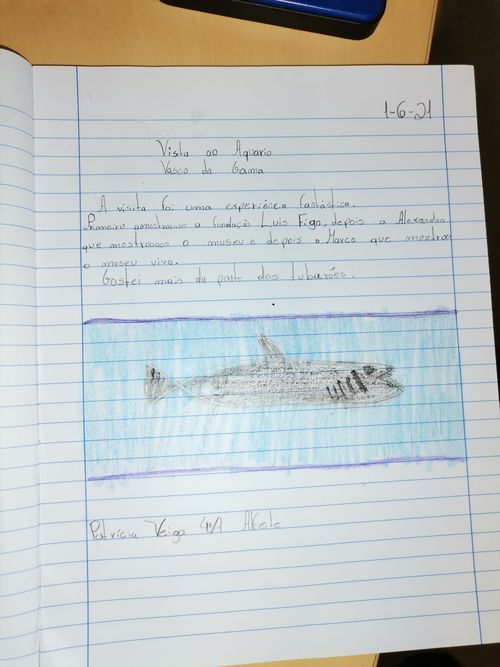 1-6-21
Visita ao Aquário
Vasco da Gama
A visita foi uma experiência fantástica.
Primeiro amostraram a fundação Luis Figo, depois a Alexandra
que mostrou-nos o museu e depois o Marco que mostrou
o museu vivo.
Gostei mais da parte dos tubarões.
Patrícia Veiga 4ºA